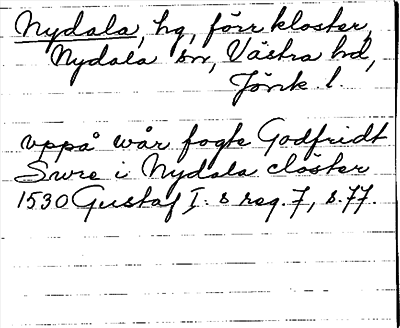 Nydala, hg, förr kloster,
Nydala sn, Västra hd,
Jönk. l.
uppå wår fogte Godfridt
Swre i Nydala clöster
1530 Gustaf I:s reg. 7, s. 77.